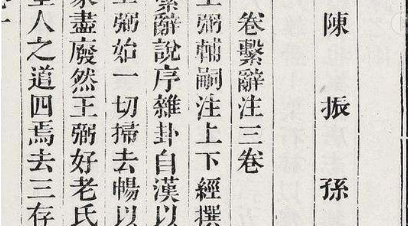 陳振孫
卷繫辭注三卷
王弼輔嗣注上下經撰
繫辭說序雜卦自漢以
王弼始一切掃去暢以
家盡廢然王弼好老氏
聖人之道四焉去三存